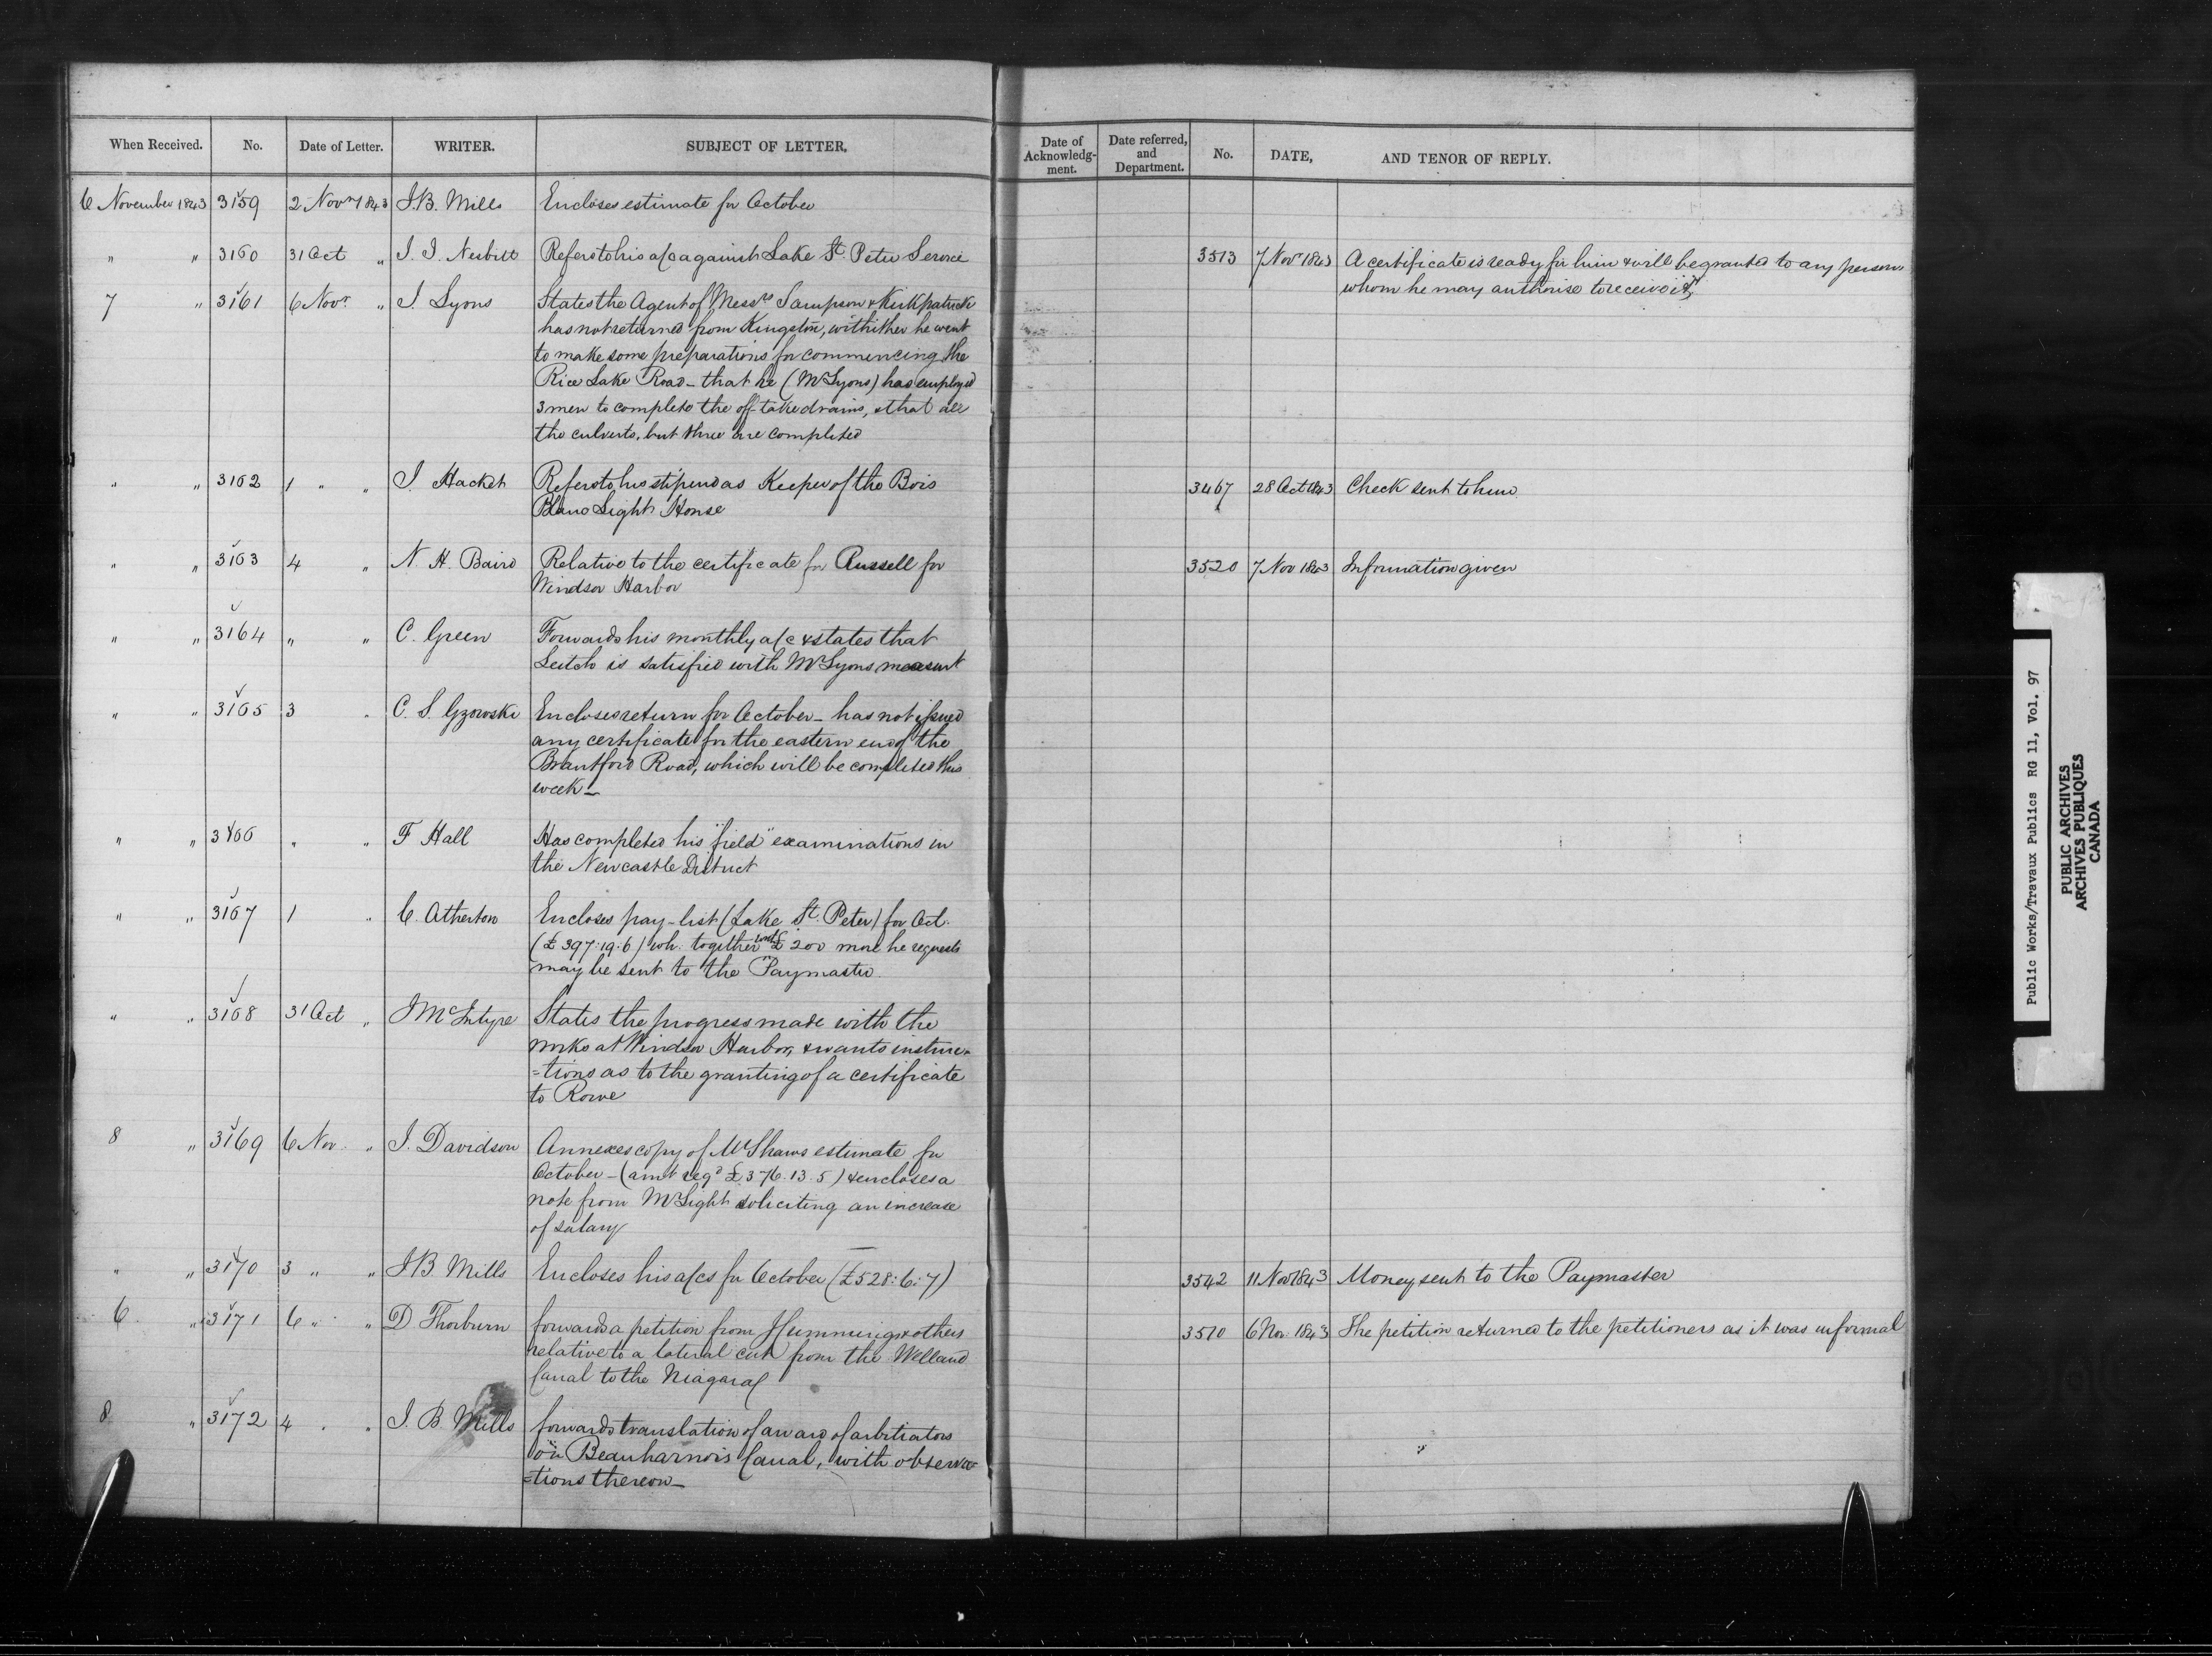 When Received. No. Date of Letter. WRITER. SUBJECT OF LETTER. Date of Acknowledg-ment. Date referred, and Department. No. DATE, AND TENOR OF REPLY.
6 November 1843 3159 2 Novr 1843 J.B. Mills Encloses estimate for October
" " 3160 31 Oct " J. J. Nesbitt Refers to his a/c against Lake St. Peter Service 3513 7 Novr 1843 A certificate is ready for him & will be granted to any person
whom he may authorise to receive it
7 " 3161 6 Novr " J. Lyons States the Agent of Messrs Sampson & Kirkpatrick
has not returned from Kingston, whither he went
to make some preparations for commencing the
Rice Lake Road - that he (Mr Lyons) has employed
3 men to complete the off-take drains, & that all
the culverts, but three are completed
" " 3162 1 " " J. Hacket Refers to his stipend as Keeper of the Bois
Blanc Light House
3467 28 Oct 1843 Check sent to him
" " 3163 4 " N. H. Baird Relative to the certificate for Russell for
Windsor Harbor
3520 7 Nov 1843 Information given
" " 3164 " " C. Green Forwards his monthly a/c & states that
Leitch is satisfied with Mr Lyons measurt
" " 3165 3 " C. S. Gzowski Encloses return for October - has not issued
any certificate for the eastern end of the
Brantford Road, which will be completed this
week -
" " 3166 " " F Hall Has completed his "field" examinations in
the Newcastle District
" " 3167 1 " C. Atherton Encloses pay-list (Lake St. Peter) for Oct.
(£397:19:6) wh. together with £200 more he requests
may be sent to the Paymaster.
" " 3168 31 Oct " J McIntyre States the progress made with the
works at Windsor Harbor, & wants instruc-
=tions as to the granting of a certificate
to Rowe
8 " 3169 6 Nov. " J. Davidson Annexes copy of Mr Shaws estimate for
October - (amt reqd £376.13.5) & encloses a
note from Mr Light soliciting an increase
of salary
" " 3170 3 " " J B Mills Encloses his a/cs for October (£528:6:7) 3542 11 Nov 1843 Money sent to the Paymaster
6 " 3171 6 " " D Thorburn forwards a petition from Hummings & others
relative to a lateral cut from the Welland
Canal to the Niagara
3510 6 Nov. 1843 The petition returned to the petitioners as it was informal
8 " 3172 4 " " J. B. Mills forwards translation of award of arbitrators
on Beauharnois Canal, with observa-
=tions thereon -
Public Works/Travaux Publics RG 11, Vol. 97
PUBLIC ARCHIVES
ARCHIVES PUBLIQUES
CANADA